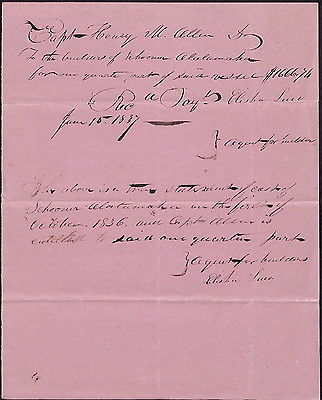 Capt Henry M. Allen Dr
To the builders of Schooner Alatamaha
for one quarter part of said vessel $1666.74
Recd Payt Elisha
June 15. 1837
} agent for builders
The above is a true statement of cost of
Schooner Alatamaha on the first of
October 1836. and Capt Allen is
entitled to said one quarter part
} agent for builders
Elisha